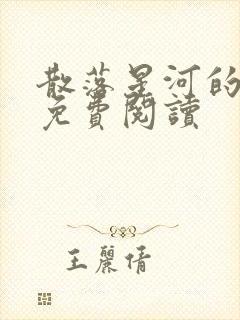 散落星河的
免費閱讀
王麗倩